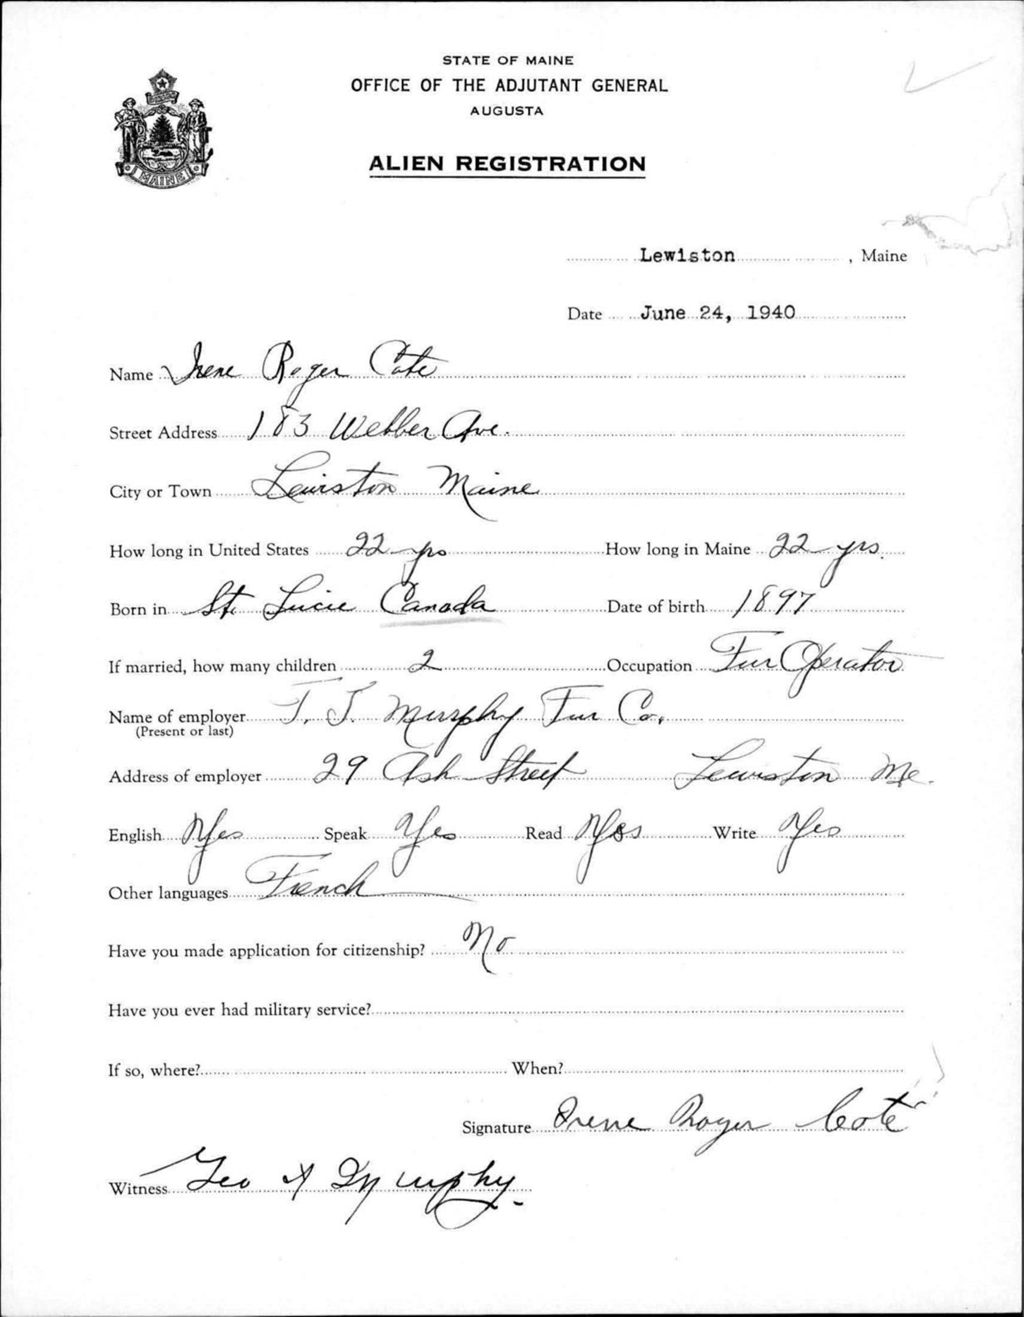 STATE OF MAINE
OFFICE OF THE ADJUTANT GENERAL
AUGUSTA
ALIEN REGISTRATION
MAINE
Lewiston, Maine
Date June 24, 1940
Name Irene Roger Cote
Street Address 183 Webber Ave.
City or Town Lewiston Maine
How long in United States 22 yrs How long in Maine 22 yrs.
Born in St. Lucie Canada Date of birth 1897
If married, how many children 2 Occupation Fur Operator
Name of employer T. J. Murphy Fur Co.
(Present or last)
Address of employer 29 Ash Street Lewiston Me.
English Yes Speak Yes Read Yes Write Yes
Other languages French
Have you made application for citizenship? No
Have you ever had military service?
If so, where? When?
Signature Irene Roger Coté
Witness Geo A Murphy